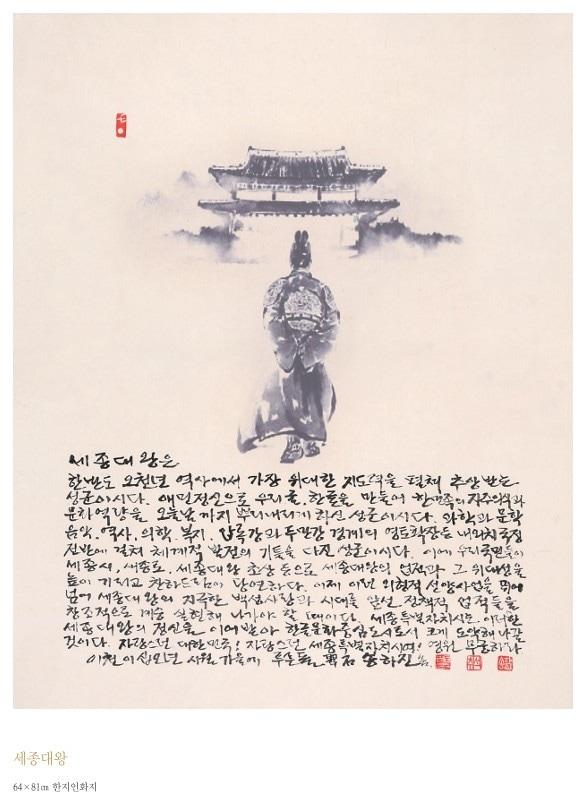 세종대왕은
한반도 오천년 역사에서 가장 위대한 지도력을 펼쳐 추앙받는
성군이시다. 애민정신으로 우리글, 한글을 만들어 한민족의 자주의식과
문화역량을 오늘날까지 뿌리내리게 하신 성군이시다. 과학과 문학
음악, 역사, 의학, 복지, 압록강과 두만강 경계의 영토확장등 내외치국정
전반에 걸쳐 체계적 발전의 기틀을 다진 성군이시다. 이에 우리국민들이
세종시, 세종로, 세종대왕 초상 등으로 세종대왕의 업적과 그 위대성을
높이 기리고 찬하드림이 당연하다. 이제 이런 외형적 선양사업을 뛰어
넘어 세종대왕의 지극한 백성사랑과 시대를 앞선 정책적 업적들을
창조적으로 계승 실현해 나가야 할 때이다. 세종특별자치시는 이러한
세종대왕의 정신을 이어받아 한글문화중심도시로서 크게 도약해 나갈
것이다. 자랑스런 대한민국! 자랑스런 세종특별자치시여! 영원 무궁하라
이천이십오년 가을에 푸른돌 송하진
세종대왕
64×81cm 한지인화지